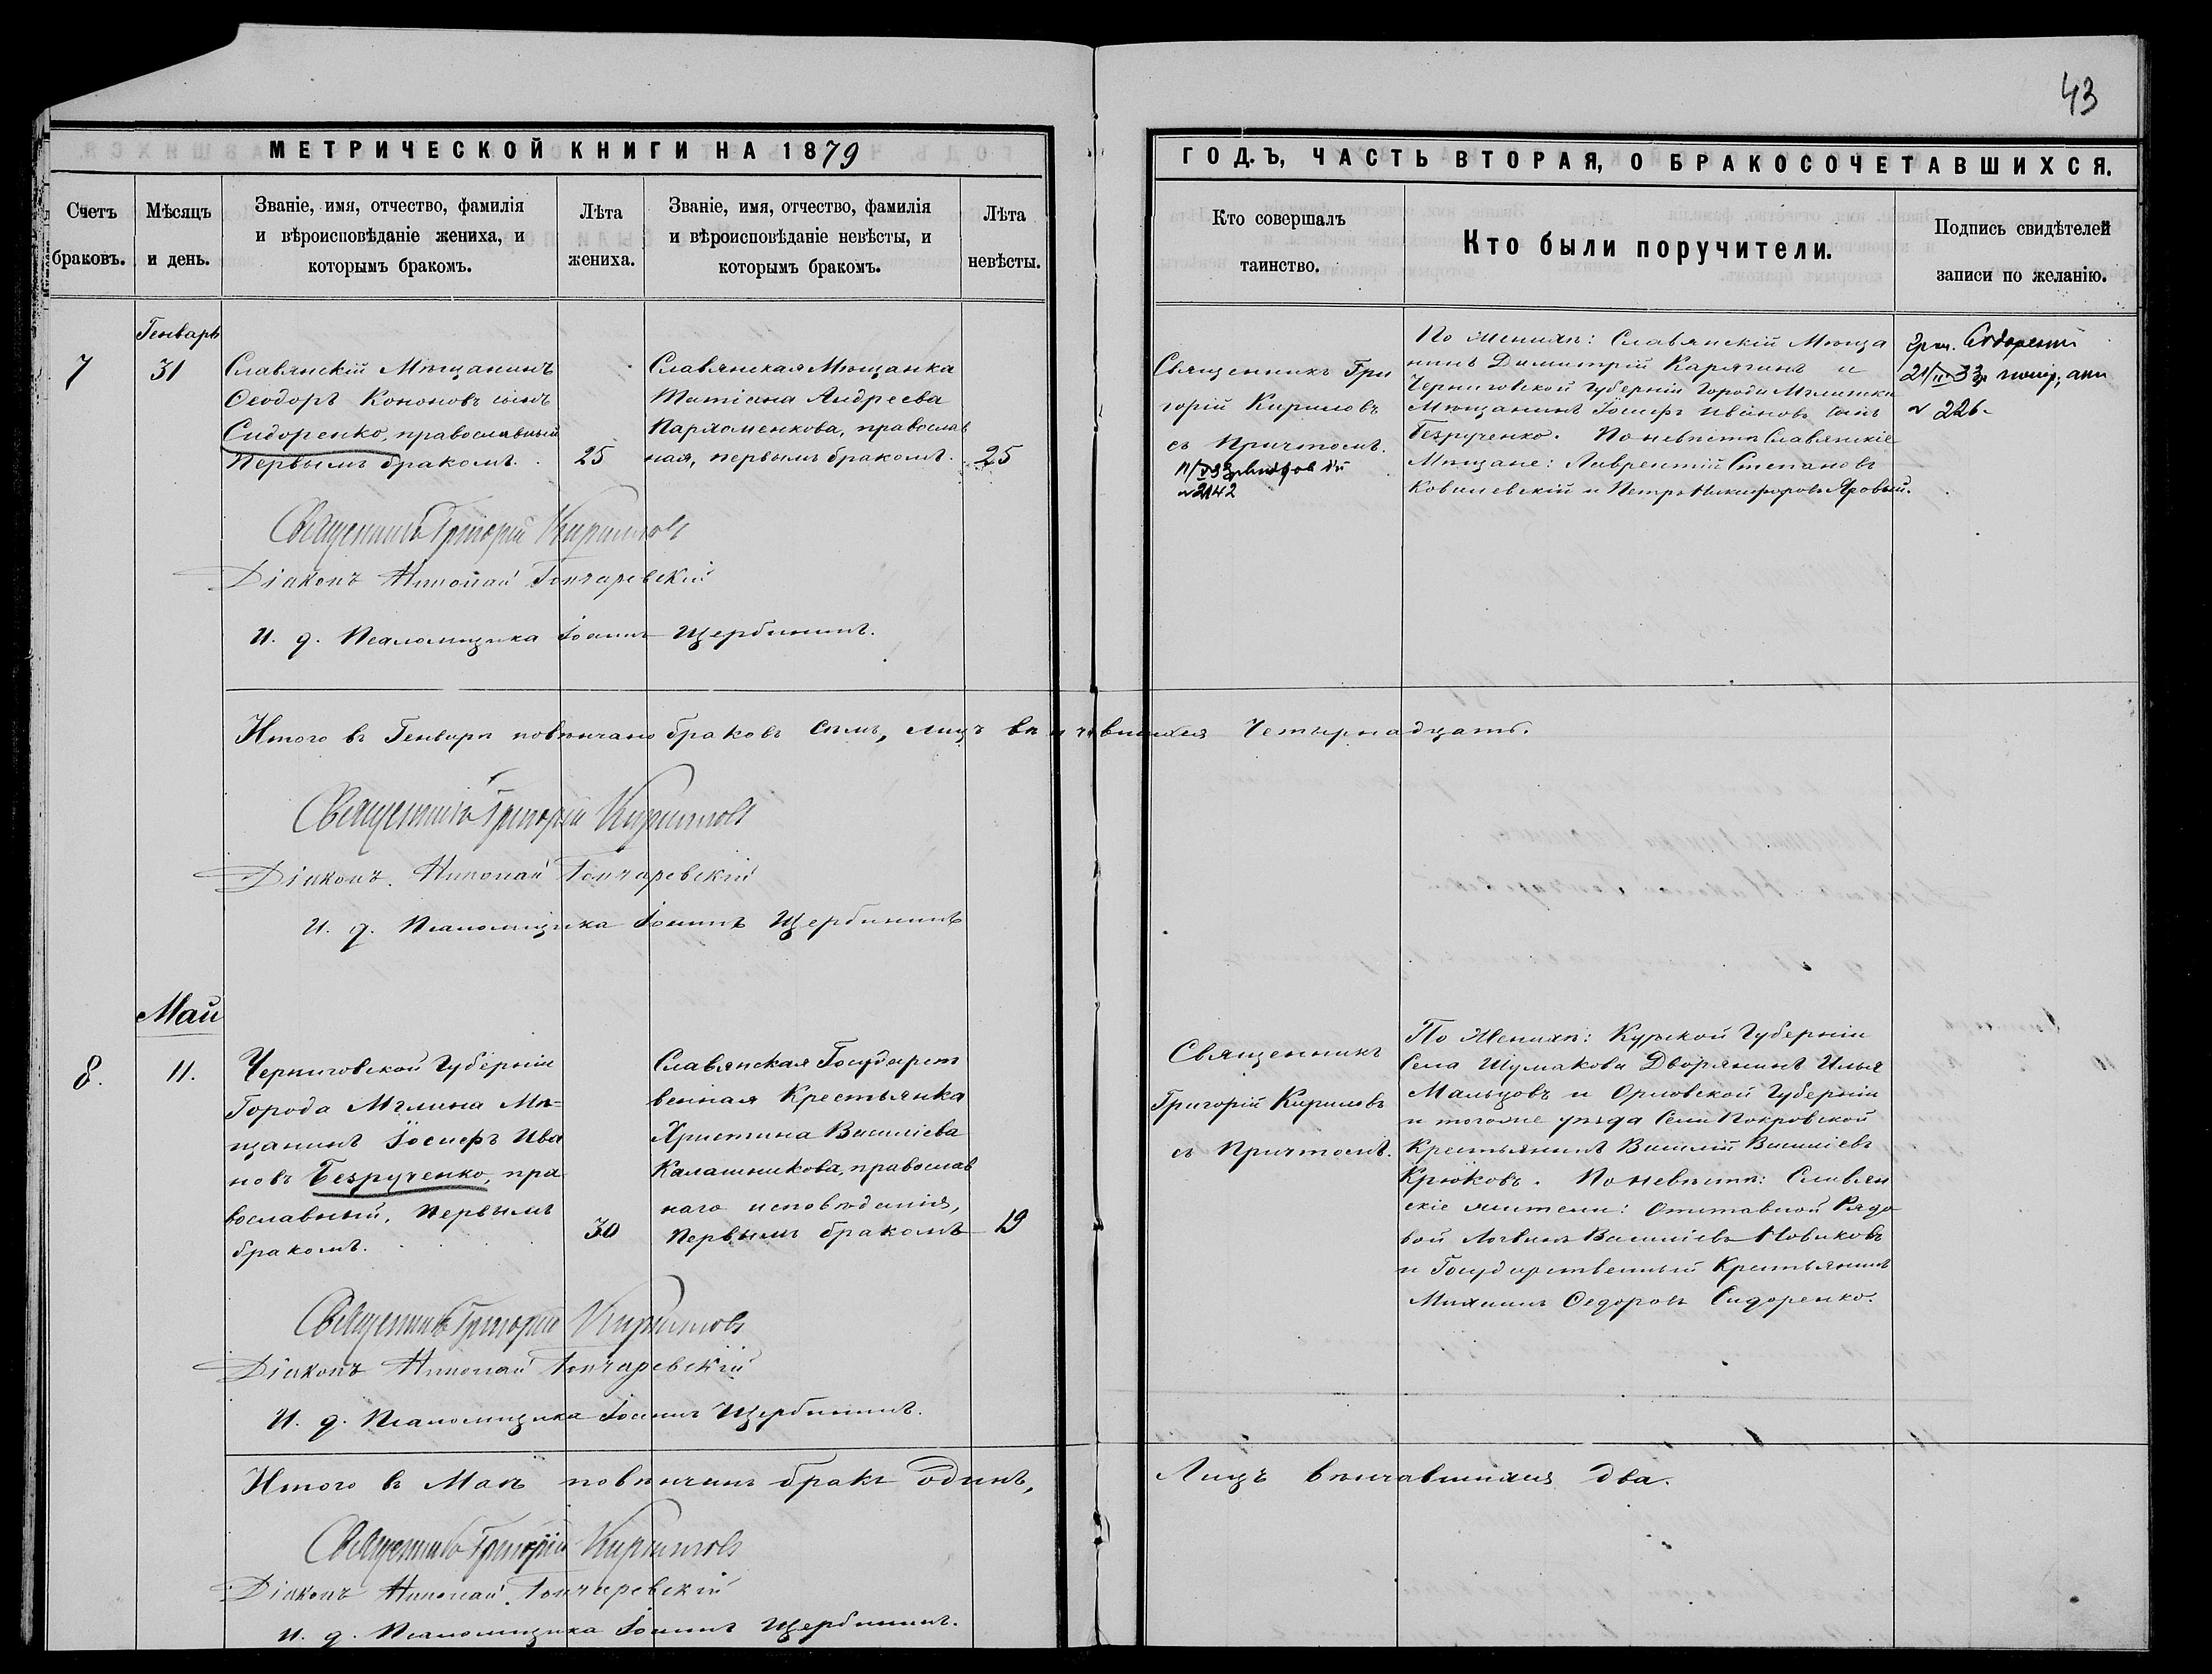 43
МЕТРИЧЕСКОЙ КНИГИ НА 1879
ГОДЪ, ЧАСТЬ ВТОРАЯ, О БРАКОСОЧЕТАВШИХСЯ.
Счетъ браковъ.
Мѣсяцъ и день.
Званіе, имя, отчество, фамилія
и вѣроисповѣданіе жениха, и
которымъ бракомъ.
Лѣта
жениха.
Званіе, имя, отчество, фамилія
и вѣроисповѣданіе невѣсты, и
которымъ бракомъ.
Лѣта
невѣсты.
Кто совершалъ
таинство.
Кто были поручители.
Подпись свидѣтелей
записи по желанію.
Генварь
7
31
Славянскій Мѣщанинъ
Ѳеодоръ Кононовъ сынъ
Сидоренко, православный
первымъ бракомъ.
25
Славянская Мѣщанка
Татіана Андреева
Пархоменкова, православ
ная, первымъ бракомъ.
25
Священникъ Гри
горій Кириловъ
съ Причтомъ.
№ 2142
По женихѣ: Славянскій Мѣща
нинъ Димитрій Карягинъ и
Черниговской Губерніи Города Мглина
Мѣщанинъ Іосифъ Ивановъ сынъ
Безрученко. По невѣстѣ Славянскіе
Мѣщане: Лаврентій Степановъ
Ковалевскій и Петръ Никифоровъ Яровый.
№ 226
Священникъ Григорій Кириловъ
Діаконъ Николай Гончаревскій
И. д. Псаломщика Іоаннъ Щербининъ.
Итого въ Генварѣ повѣнчано браковъ семь, лицъ вѣнчавшихся Четырнадцать.
Священникъ Григорій Кириловъ
Діаконъ Николай Гончаревскій
И. д. Псаломщика Іоаннъ Щербининъ
Май
8.
11.
Черниговской Губерніи
Города Мглина Мѣ=
щанинъ Іосифъ Ива
новъ Безрученко, пра
вославный, первымъ
бракомъ.
30
Славянская Государст
венная Крестьянка
Христина Василіева
Калашникова, православ
наго исповѣданія,
первымъ бракомъ
19
Священникъ
Григорій Кириловъ
съ Причтомъ.
По Женихѣ: Курской Губерніи
Села Шумакова Дворянинъ Илья
Мальцовъ и Орловской Губерніи
и тогоже уѣзда Села Покровской
Крестьянинъ Василій Василіевъ
Крюковъ. По невѣстѣ: Славян
скіе жители: Отставной Рядо
вой Логвинъ Василіевъ Новиковъ
и Государственный Крестьянинъ
Михаилъ Ѳедоровъ Сидоренко.
Священникъ Григорій Кириловъ
Діаконъ Николай Гончаревскій
И. д. Псаломщика Іоаннъ Щербининъ.
Итого въ Маѣ повѣнчанъ бракъ одинъ,
Лицъ вѣнчавшихся два.
Священникъ Григорій Кириловъ
Діаконъ Николай Гончаревскій
И. д. Псаломщика Іоаннъ Щербининъ.